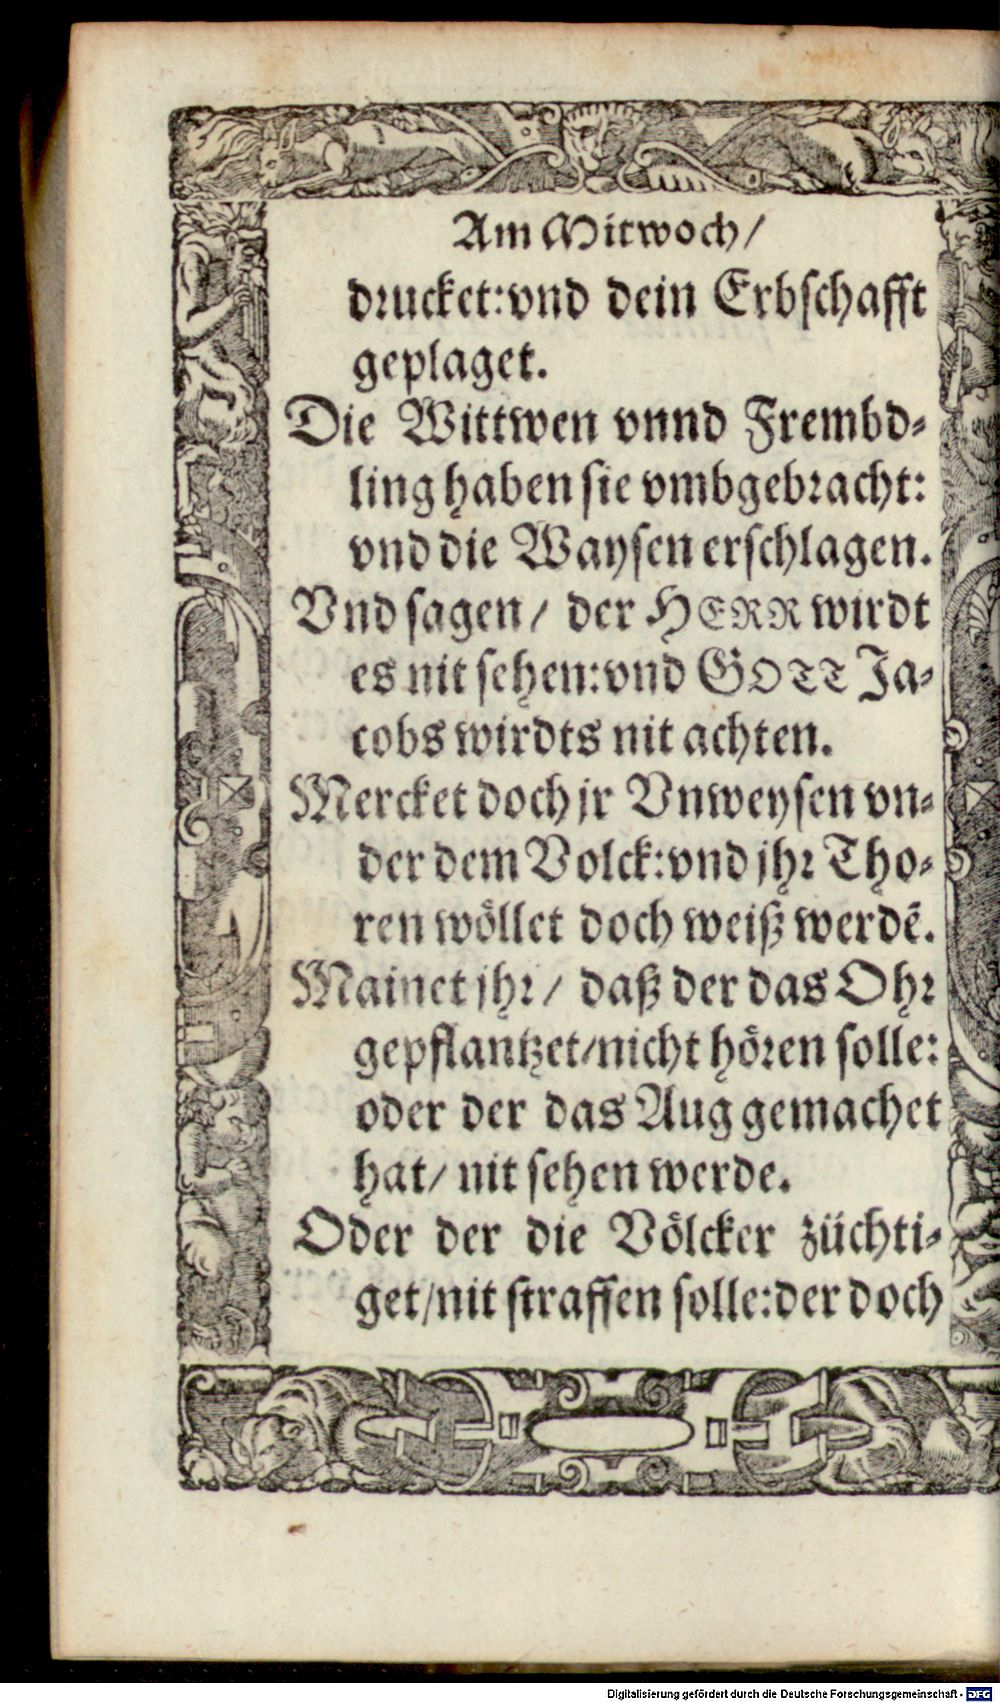 Am Mitwoch/
drucket:vnd dein Erbschafft
geplaget.
Die Wittwen vnnd Frembd-
ling haben sie vmbgebracht:
vnd die Waysen erschlagen.
Vnd sagen/ der HERR wirdt
es nit sehen:vnd GOTT Ja-
cobs wirdts nit achten.
Mercket doch jr Vnweysen vn-
der dem Volck:vnd jhr Tho-
ren wöllet doch weiß werdẽ.
Mainet jhr/ daß der das Ohr
gepflantzet/nicht hören solle:
oder der das Aug gemachet
hat/ nit sehen werde.
Oder der die Völcker züchti-
get/nit straffen solle:der doch
Digitalisierung gefördert durch die Deutsche Forschungsgemeinschaft - DFG